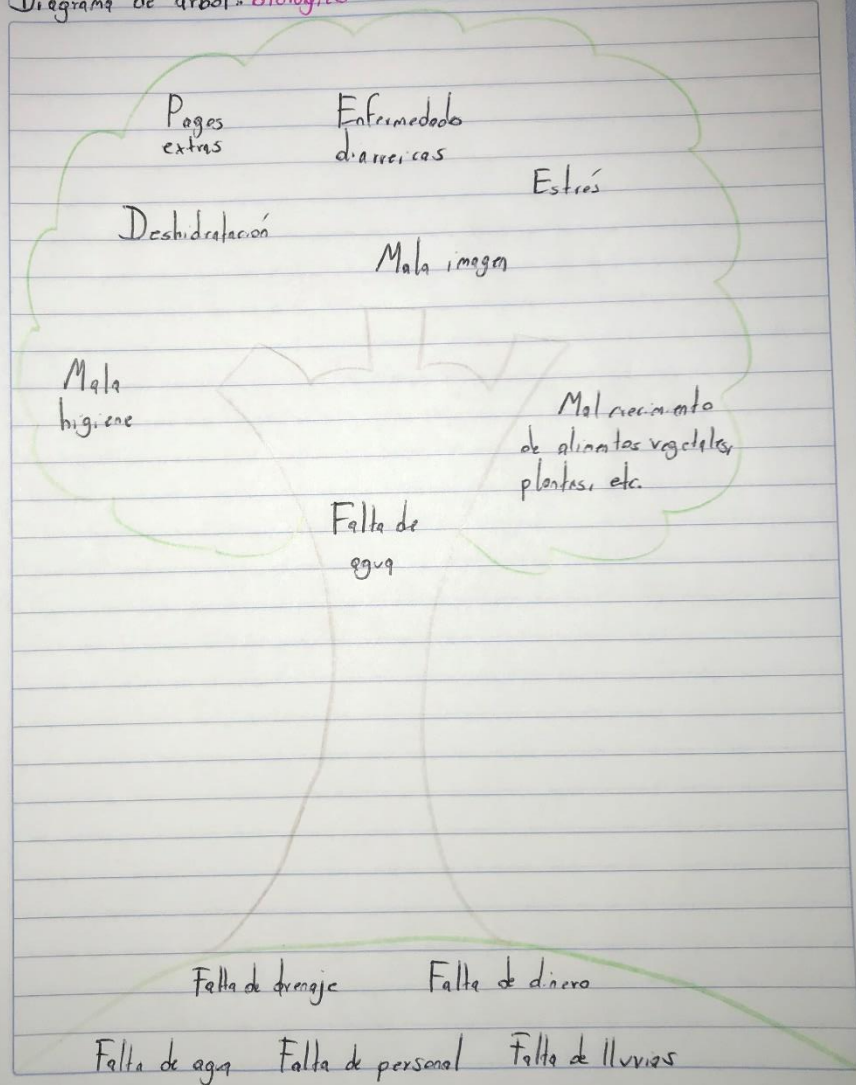 Diagrama de árbol: Biológico
Pagos Enfermedads
extras diarreicas
Estrés
Deshidratación
Mala imagen
Mala
higiene
Mal crecimiento
de alimentos vegetales,
plantas, etc.
Falta de
agua
Falta de drenaje Falta de dinero
Falta de agua Falta de personal Falta de lluvias